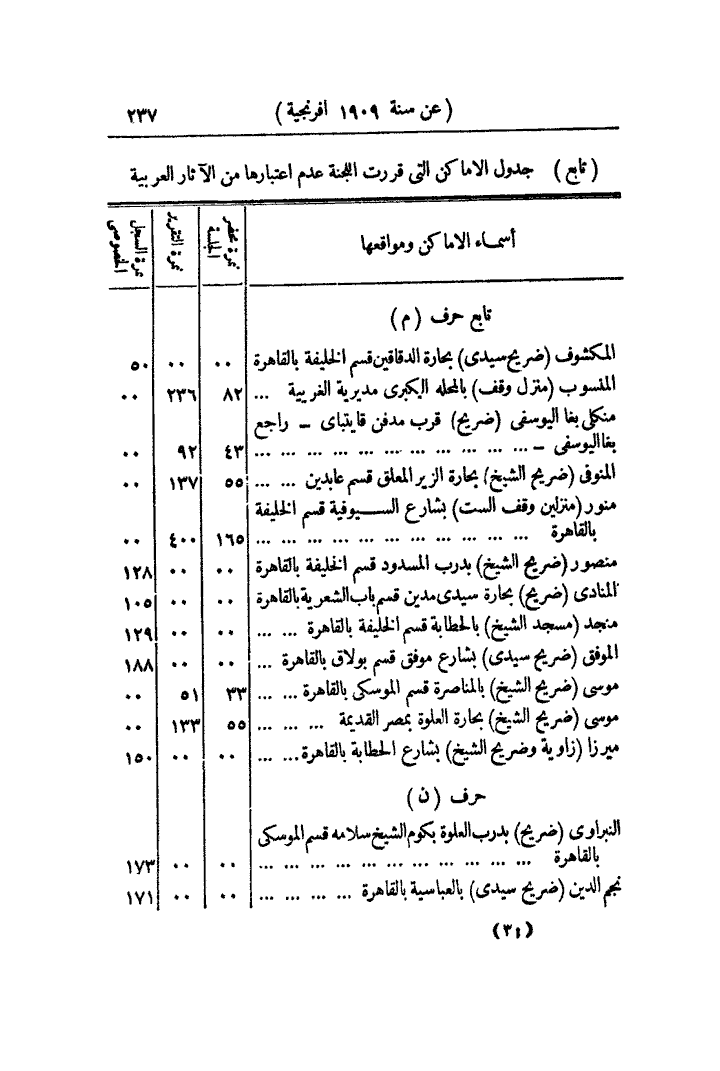 (عن سنة ١٩٠٩ افرنجية) ٢٣٧
(تابع) جدول الاماكن التى قررت اللجنة عدم اعتبارها من الآثار العربية
أسماء الاماكن ومواقعها | نمرة محضر الجلسة | نمرة التقرير | نمرة السجل الخصوصى
تابع حرف (م)
المكشوف (ضريح سيدى) بحارة الدقاقين قسم الخليفة بالقاهرة ٠٠ ٠٠ ٥٠
المنسوب (منزل وقف) بالمحله الكبرى مديرية الغربية ... ٨٢ ٢٣٦ ٠٠
منكلى بغا اليوسفى (ضريح) قرب مدفن قايتباى – راجع
بغا اليوسفى – ... ... ... ... ... ... ... ... ... ... ... ٤٣ ٩٢ ٠٠
المنوفى (ضريح الشيخ) بحارة الزير المعلق قسم عابدين ... ... ٥٥ ١٣٧ ٠٠
منور (منزلين وقف الست) بشارع السيوفية قسم الخليفة
بالقاهرة ... ... ... ... ... ... ... ... ... ... ... ١٦٥ ٤٠٠ ٠٠
منصور (ضريح الشيخ) بدرب المسدود قسم الخليفة بالقاهرة ٠٠ ٠٠ ١٢٨
المنادى (ضريح) بحارة سيدى مدين قسم باب الشعرية بالقاهرة ٠٠ ٠٠ ١٠٥
منجد (مسجد الشيخ) بالحطابة قسم الخليفة بالقاهرة ... ... ٠٠ ٠٠ ١٢٩
الموفق (ضريح سيدى) بشارع موفق قسم بولاق بالقاهرة ... ٠٠ ٠٠ ١٨٨
موسى (ضريح الشيخ) بالمناصرة قسم الموسكى بالقاهرة ... ... ٣٣ ٥١ ٠٠
موسى (ضريح الشيخ) بحارة العلوة بمصر القديمة ... ... ... ٥٥ ١٣٣ ٠٠
ميرزا (زاوية وضريح الشيخ) بشارع الحطابة بالقاهرة ... ... ٠٠ ٠٠ ١٥٠
حرف (ن)
النبراوى (ضريح) بدرب العلوة بكوم الشيخ سلامه قسم الموسكى
بالقاهرة ... ... ... ... ... ... ... ... ... ... ... ٠٠ ٠٠ ١٧٣
نجم الدين (ضريح سيدى) بالعباسية بالقاهرة ... ... ... ... ٠٠ ٠٠ ١٧١